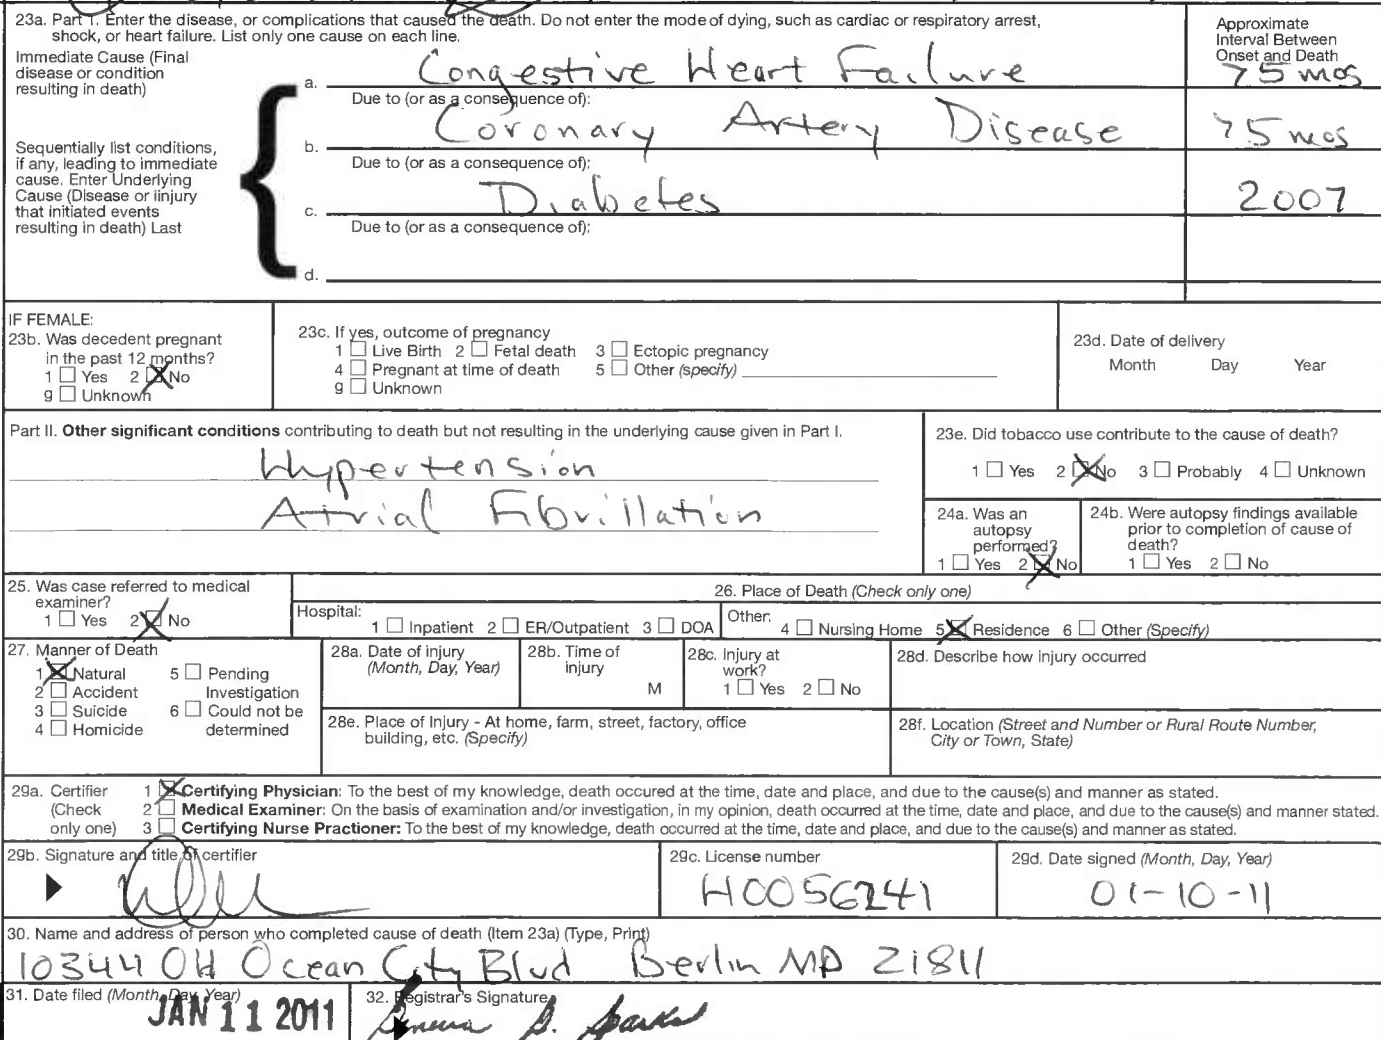 23a. Part I. Enter the disease, or complications that caused the death. Do not enter the mode of dying, such as cardiac or respiratory arrest,
shock, or heart failure. List only one cause on each line.
Approximate
Interval Between
Onset and Death
Immediate Cause (Final
disease or condition
resulting in death)
a. Congestive Heart Failure >5 mos
Due to (or as a consequence of):
b. Coronary Artery Disease >5 mos
Sequentially list conditions,
if any, leading to immediate
cause. Enter Underlying
Cause (Disease or iinjury
that initiated events
resulting in death) Last
Due to (or as a consequence of):
c. Diabetes 2007
Due to (or as a consequence of):
d.
IF FEMALE:
23b. Was decedent pregnant
in the past 12 months?
1 Yes 2 No
9 Unknown
23c. If yes, outcome of pregnancy
1 Live Birth 2 Fetal death 3 Ectopic pregnancy
4 Pregnant at time of death 5 Other (specify)
9 Unknown
23d. Date of delivery
Month Day Year
Part II. Other significant conditions contributing to death but not resulting in the underlying cause given in Part I.
Hypertension
Atrial Fibrillation
23e. Did tobacco use contribute to the cause of death?
1 Yes 2 No 3 Probably 4 Unknown
24a. Was an
autopsy
performed?
1 Yes 2 No
24b. Were autopsy findings available
prior to completion of cause of
death?
1 Yes 2 No
25. Was case referred to medical
examiner?
1 Yes 2 No
26. Place of Death (Check only one)
Hospital: 1 Inpatient 2 ER/Outpatient 3 DOA
Other: 4 Nursing Home 5 Residence 6 Other (Specify)
27. Manner of Death
1 Natural 5 Pending
2 Accident Investigation
3 Suicide 6 Could not be
4 Homicide determined
28a. Date of injury
(Month, Day, Year)
28b. Time of
injury
M
28c. Injury at
work?
1 Yes 2 No
28d. Describe how injury occurred
28e. Place of Injury - At home, farm, street, factory, office
building, etc. (Specify)
28f. Location (Street and Number or Rural Route Number,
City or Town, State)
29a. Certifier
(Check
only one)
1 Certifying Physician: To the best of my knowledge, death occured at the time, date and place, and due to the cause(s) and manner as stated.
2 Medical Examiner: On the basis of examination and/or investigation, in my opinion, death occurred at the time, date and place, and due to the cause(s) and manner stated.
3 Certifying Nurse Practioner: To the best of my knowledge, death occurred at the time, date and place, and due to the cause(s) and manner as stated.
29b. Signature and title of certifier
29c. License number
H0056241
29d. Date signed (Month, Day, Year)
01-10-11
30. Name and address of person who completed cause of death (Item 23a) (Type, Print)
10344 Old Ocean City Blvd Berlin MD 21811
31. Date filed (Month, Day, Year)
JAN 11 2011
32. Registrar's Signature